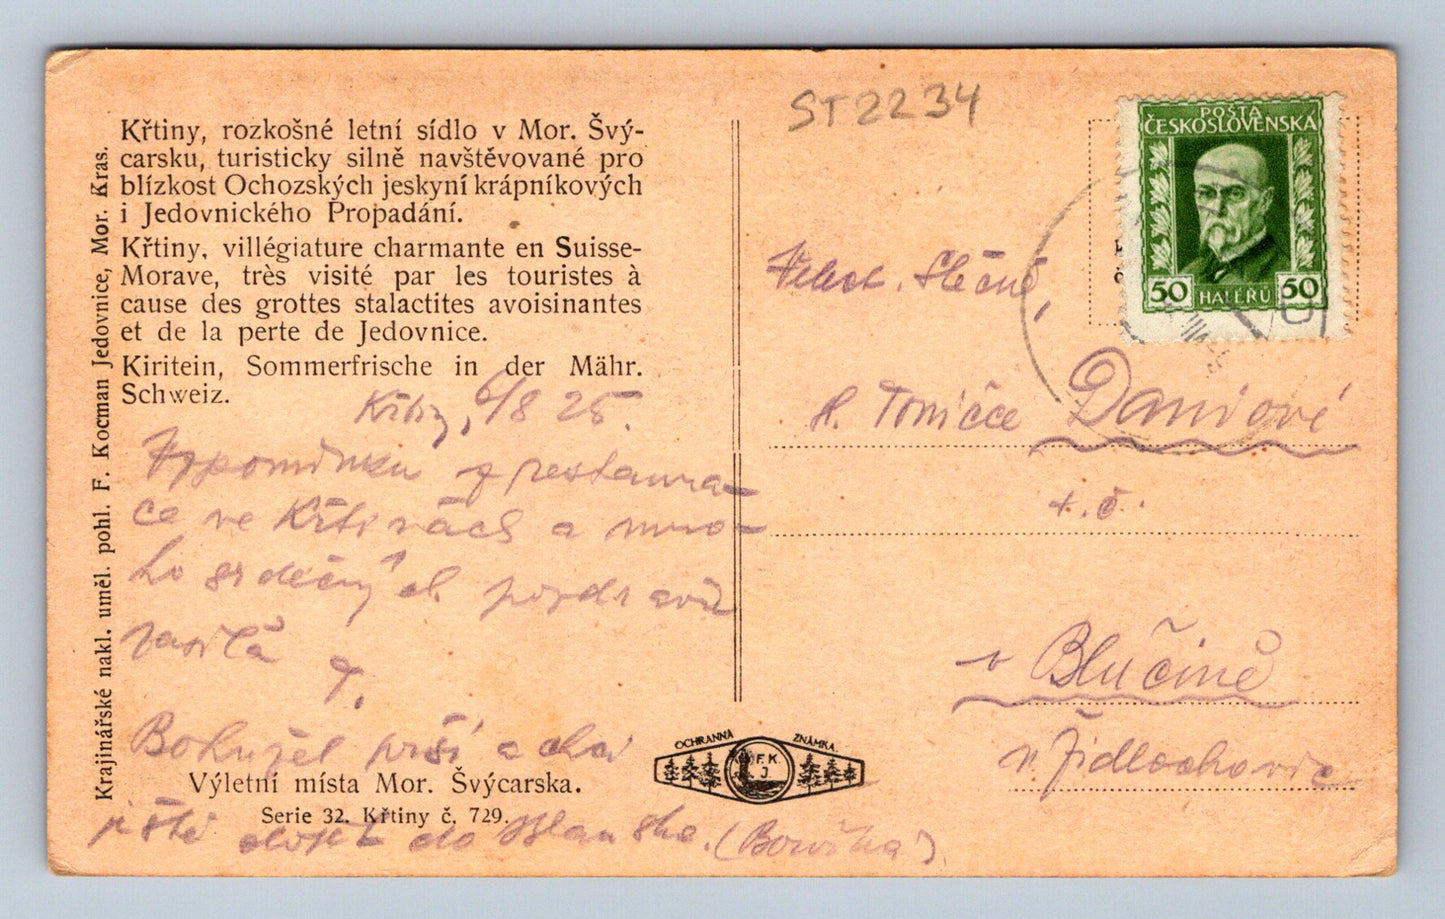 ST2234
Křtiny, rozkošné letní sídlo v Mor. Švý-
carsku, turisticky silně navštěvované pro
blízkost Ochozských jeskyní krápníkových
i Jedovnického Propadání.
Křtiny, villégiature charmante en Suisse-
Morave, très visité par les touristes à
cause des grottes stalactites avoisinantes
et de la perte de Jedovnice.
Kiritein, Sommerfrische in der Mähr.
Schweiz.
Krajinářské nakl. uměl. pohl. F. Kocman Jedovnice, Mor. Kras.
6/8 25.
Vzpomínku z restaura-
ce ve Křtinách a mno-
ho srdečných pozdravů
zasílá
T.
Bohužel prší a chci
ještě dojít do Blanska.
Výletní místa Mor. Švýcarska.
Serie 32. Křtiny č. 729.
OCHRANNÁ ZNÁMKA
F. K.
J.
POŠTA
ČESKOSLOVENSKÁ
50 HALÉŘŮ 50
Slečně,
Toničce Daniové
t. č.
v Blučině
Židlochovic